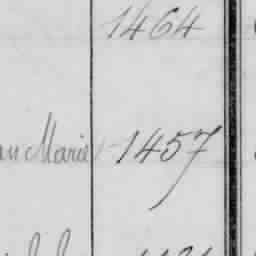 1464
an Marie 1457